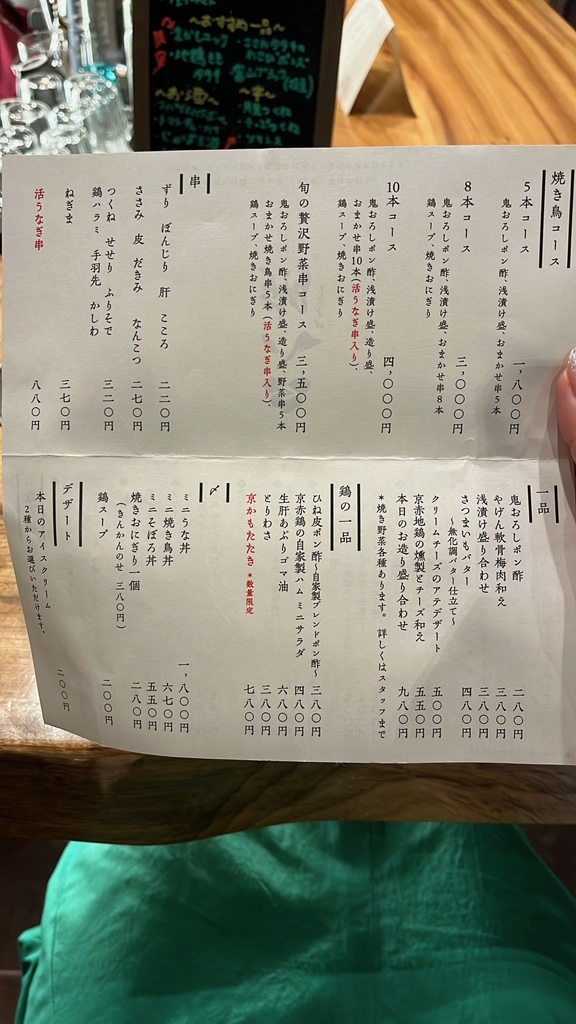 〜おすすめ一品〜
〜お酒〜
焼き鳥コース
5本コース 一,八〇〇円
鬼おろしポン酢、浅漬け盛、おまかせ串5本
8本コース 三,〇〇〇円
鬼おろしポン酢、浅漬け盛、おまかせ串8本
鶏スープ、焼きおにぎり
10本コース 四,〇〇〇円
鬼おろしポン酢、浅漬け盛、造り盛、
おまかせ串10本(活うなぎ串入り)、
鶏スープ、焼きおにぎり
旬の贅沢野菜串コース 三,五〇〇円
鬼おろしポン酢、浅漬け盛、造り盛、野菜串5本
おまかせ焼き鳥串5本(活うなぎ串入り)、
鶏スープ、焼きおにぎり
串
ずり ぼんじり 肝 こころ 二二〇円
ささみ 皮 だきみ なんこつ 二七〇円
つくね せせり ふりそで
鶏ハラミ 手羽先 かしわ 三二〇円
ねぎま 三七〇円
活うなぎ串 八八〇円
一品
鬼おろしポン酢 二八〇円
やげん軟骨梅肉和え 三八〇円
浅漬け盛り合わせ 三八〇円
さつまいもバター 四八〇円
〜無化調バター仕立て〜
クリームチーズのアテデザート 五〇〇円
京赤地鶏の燻製とチーズ和え 五五〇円
本日のお造り盛り合わせ 九八〇円
*焼き野菜各種あります。詳しくはスタッフまで
鶏の一品
ひね皮ポン酢〜自家製ブレンドポン酢〜 三八〇円
京赤鶏の自家製ハム ミニサラダ 四八〇円
生肝あぶりゴマ油 六八〇円
とりわさ 三八〇円
京かもたたき *数量限定 七八〇円
〆
ミニうな丼 一,八〇〇円
ミニ焼き鳥丼 六七〇円
ミニそぼろ丼 五五〇円
焼きおにぎり一個 二八〇円
(きんかんのせ 三八〇円)
鶏スープ 二〇〇円
デザート
本日のアイスクリーム 二〇〇円
2種からお選びいただけます。